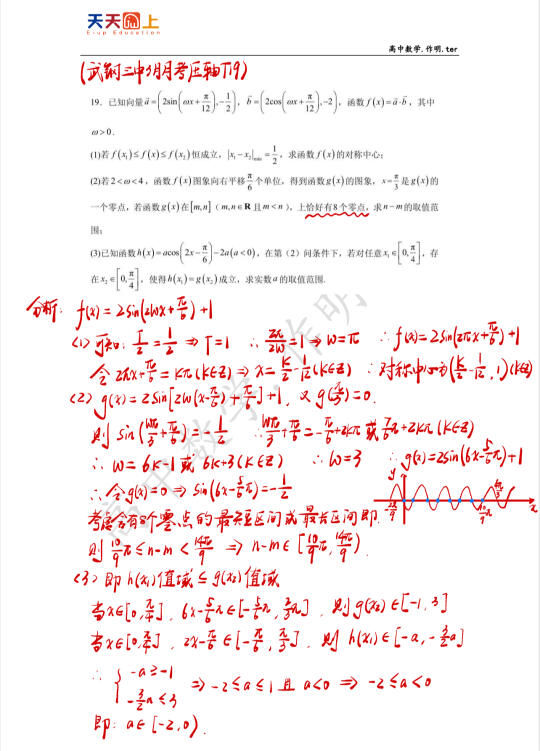 天天向上
Eiup Education
高中数学.作明.ter
(武钢三中3月月考压轴T19)
19. 已知向量 a⃗=(2sin(ωx+π/12),-1/2), b⃗=(2cos(ωx+π/12),-2), 函数 f(x)=a⃗·b⃗, 其中
ω>0.
(1)若 f(x₁)≤f(x)≤f(x₂) 恒成立, |x₁-x₂|min=1/2, 求函数 f(x) 的对称中心;
(2)若 2<ω<4, 函数 f(x) 图象向右平移 π/6 个单位, 得到函数 g(x) 的图象, x=π/3 是 g(x) 的
一个零点, 若函数 g(x) 在 [m,n] (m,n∈R 且 m<n), 上恰好有8个零点, 求 n-m 的取值范
围;
(3)已知函数 h(x)=acos(2x-π/6)-2a(a<0), 在第(2)问条件下, 若对任意 x₁∈[0,π/4], 存
在 x₂∈[0,π/4], 使得 h(x₁)=g(x₂) 成立, 求实数 a 的取值范围.
分析: f(x)=2sin(2ωx+π/6)+1
(1) 可知: T/2=1/2 ⇒ T=1 ∴ 2π/2ω=1 ⇒ ω=π ∴ f(x)=2sin(2πx+π/6)+1
令 2πx+π/6=kπ(k∈Z) ⇒ x=k/2-1/12(k∈Z) ∴ 对称中心为(k/2-1/12,1)(k∈Z)
(2) g(x)=2sin[2ω(x-π/6)+π/6]+1, 又 g(π/3)=0.
则 sin(ωπ/3+π/6)=-1/2 ∴ ωπ/3+π/6=-π/6+2kπ 或 7/6π+2kπ (k∈Z)
∴ ω=6k-1 或 6k+3(k∈Z) ∴ ω=3 ∴ g(x)=2sin(6x-5/6π)+1
∴ 令 g(x)=0 ⇒ sin(6x-5/6π)=-1/2
y
x
考虑含有8个零点的最短区间或最长区间即.
则 10/9π≤n-m<14π/9 ⇒ n-m∈[10/9π,14π/9).
(3) 即 h(x₁)值域⊆g(x₂)值域
当x∈[0,π/4], 6x-5/6π∈[-5/6π,2/3π], 则 g(x₂)∈[-1,3]
当x∈[0,π/4], 2x-π/6∈[-π/6,π/3], 则 h(x₁)∈[-a,-3/2a]
∴ { -a≥-1
-3/2a≤3 ⇒ -2≤a≤1 且 a<0 ⇒ -2≤a<0
即: a∈[-2,0).
高中数学.作明